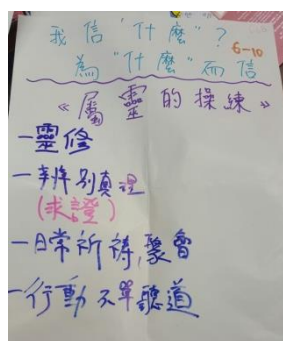 我信"什麼"?
6-10
為"什麼"而信
《屬靈的操練》
一靈修
一辨别真理
(求證)
一日常祈禱,聚會
一行動不單聽道